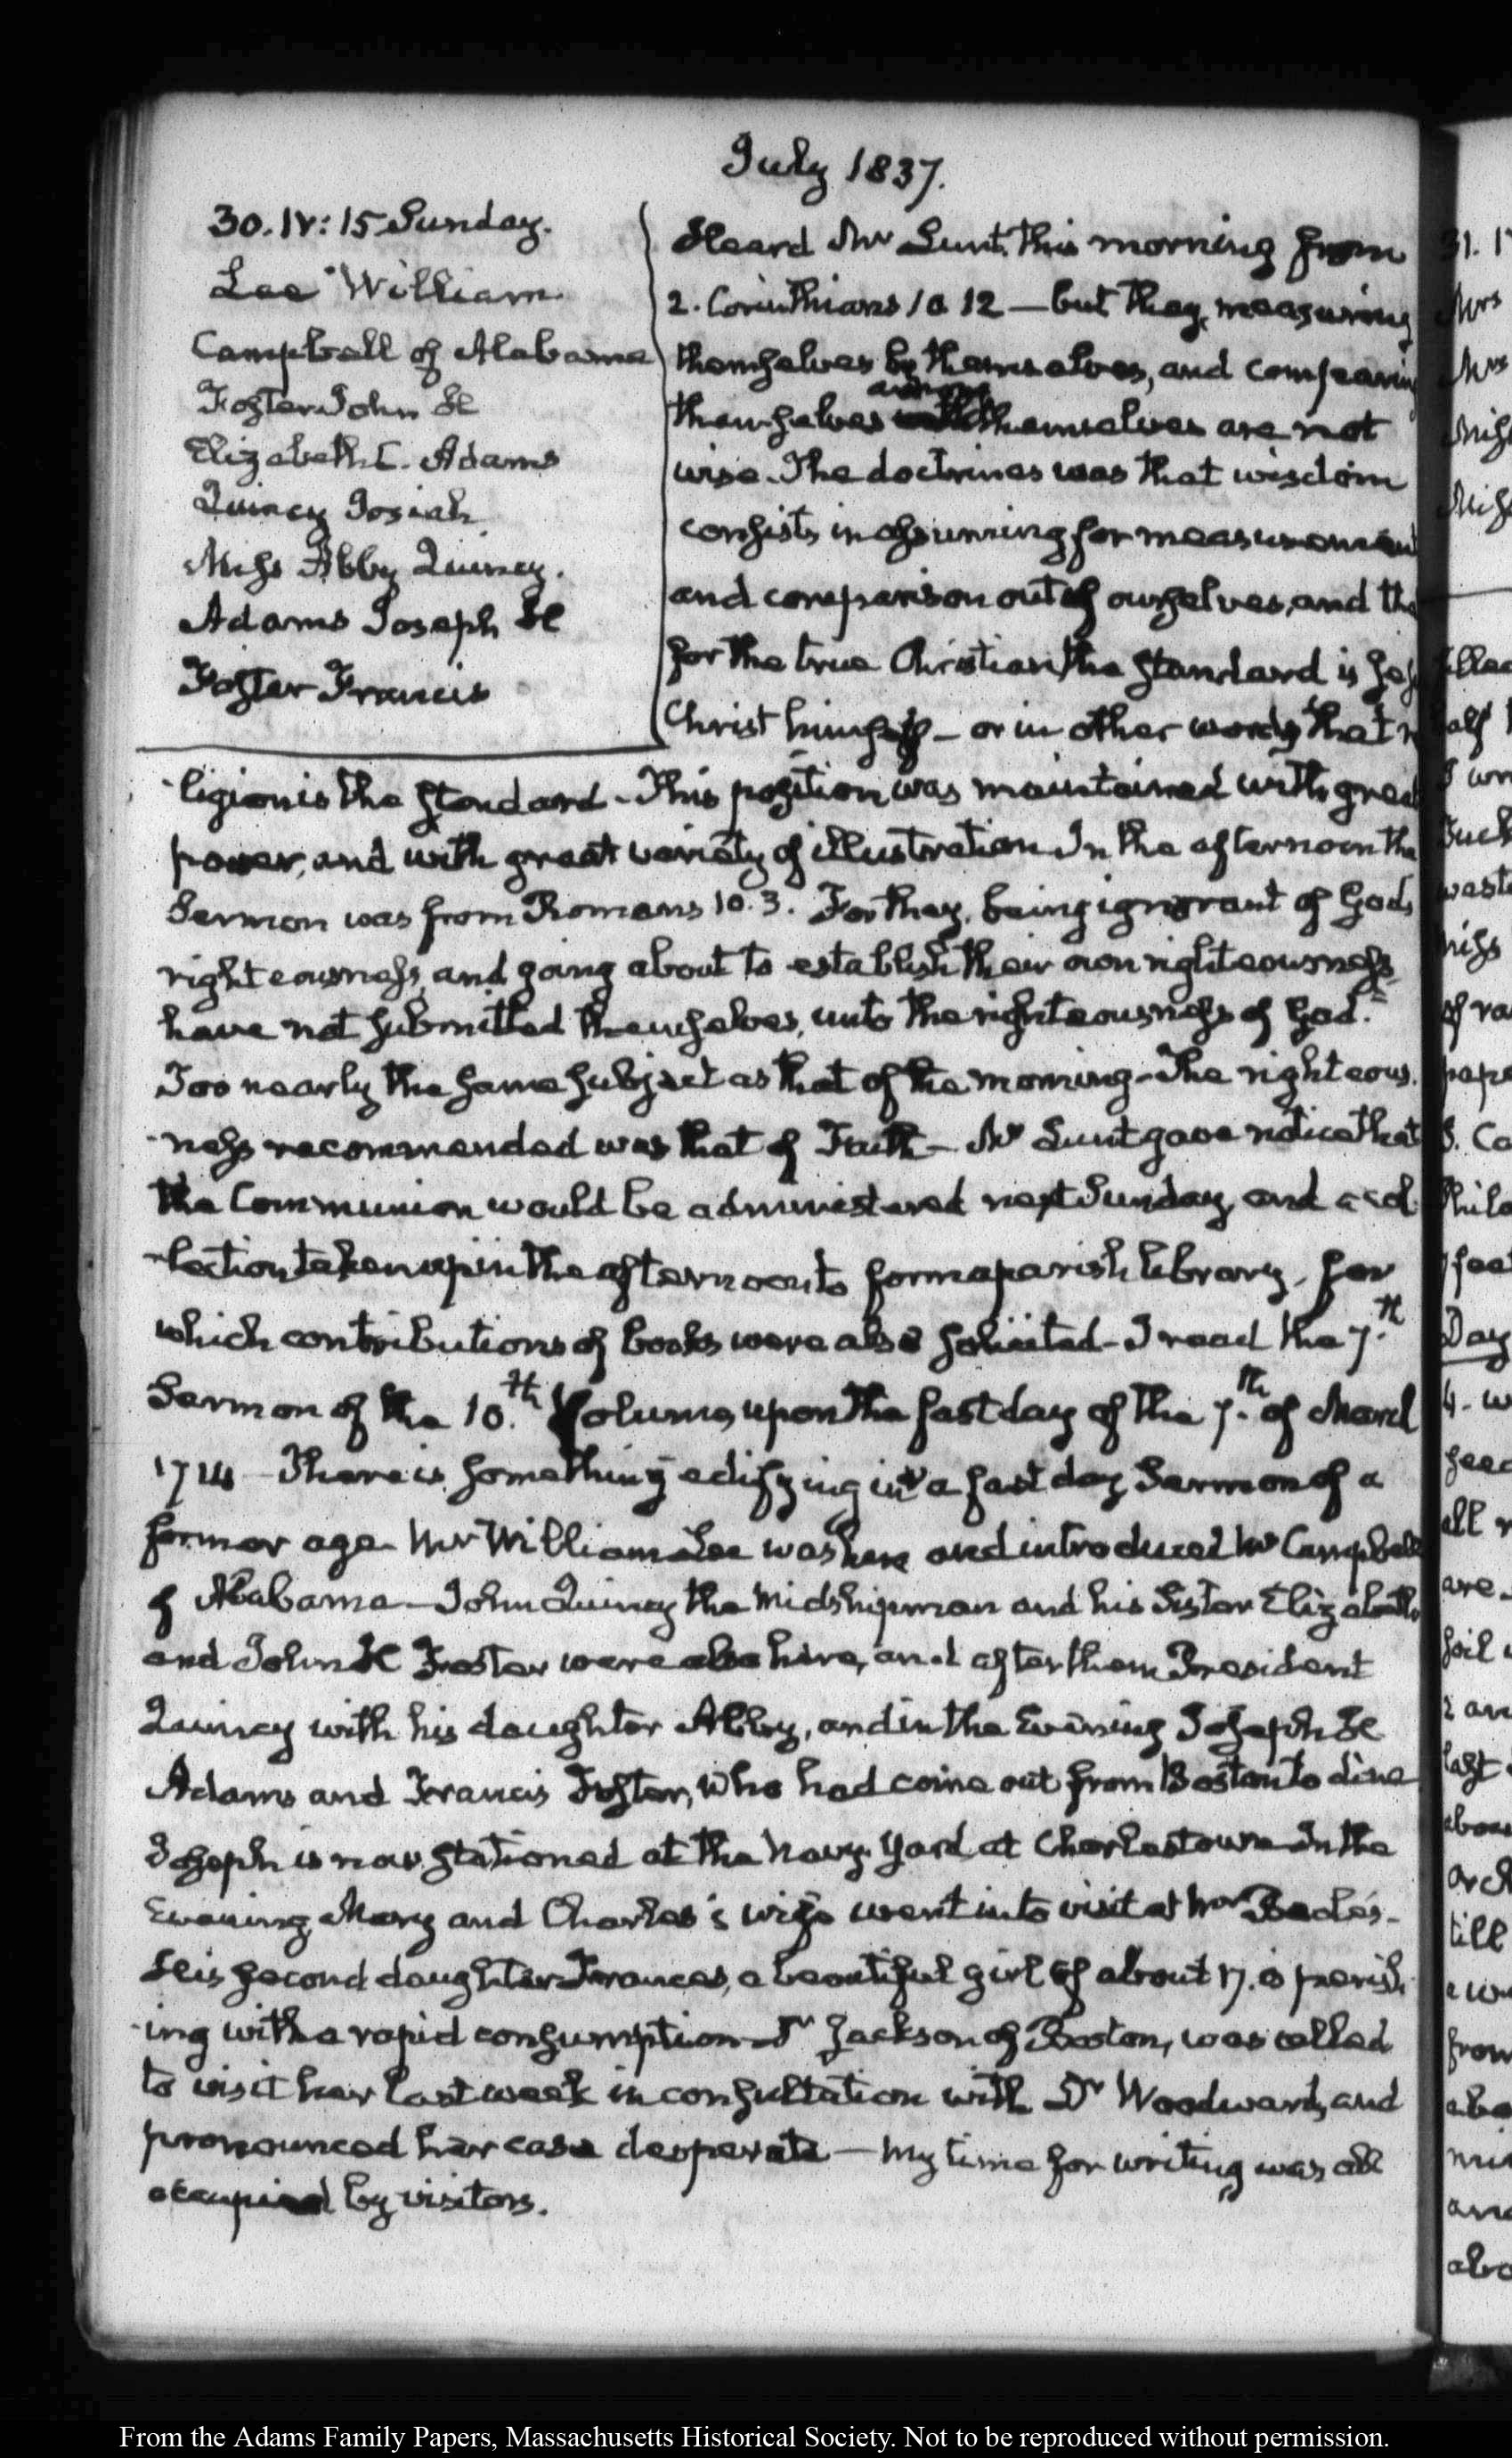 July 1837.
30. IV: 15 Sunday.
Lee William
Campbell of Alabama
Foster John H
Elizabeth C. Adams
Quincy Josiah
Miss Abby Quincy.
Adams Joseph H
Foster Francis
Heard Mr Lunt this morning from
2. Corinthians 10 12 — but they, measuring
themselves by themselves, and comparing
themselves among themselves are not
wise. The doctrines was that wisdom
consists in assuming for measurement
and comparison out of ourselves, and
for the true Christian, the standard is
Christ himself — or in other words that
ligion is the standard – This position was maintained with great
power, and with great variety of illustration In the afternoon the
Sermon was from Romans 10. 3. For they, being ignorant of Gods
righteousness, and going about to establish their own righteousness
have not submitted themselves, unto the righteousness of God."
Too nearly the same subject as that of the morning – The righteous
ness recommended was that of Faith – Mr Lunt gave notice that
the Communion would be administered next Sunday, and a col
-lection taken up in the afternoon to form a parish library, for
which contributions of books were also solicited – I read the 7.th
Sermon of the 10.th Volume, upon the fast day of the 7.th of March
1714 – There is something edifying in a fast day Sermon of a
former age. Mr William Lee was here and introduced Mr Campbell
of Alabama – John Quincy the Midshipman and his Sister Elizabeth
and John H Foster were also here, and after them President
Quincy with his daughter Abby, and in the Evening Joseph H
Adams and Francis Foster, who had come out from Boston to dine
Joseph is now stationed at the Navy Yard at Charlestown – In the
Evening Mary and Charles's wife went in to visit at Mr Beale's –
His second daughter Frances, a beautiful girl of about 17. is perish
-ing with a rapid consumption – Dr Jackson of Boston, was called
to visit her last week in consultation with Dr Woodward, and
pronounced her case desperate — My time for writing was all
occupied by visitors.
From the Adams Family Papers, Massachusetts Historical Society. Not to be reproduced without permission.